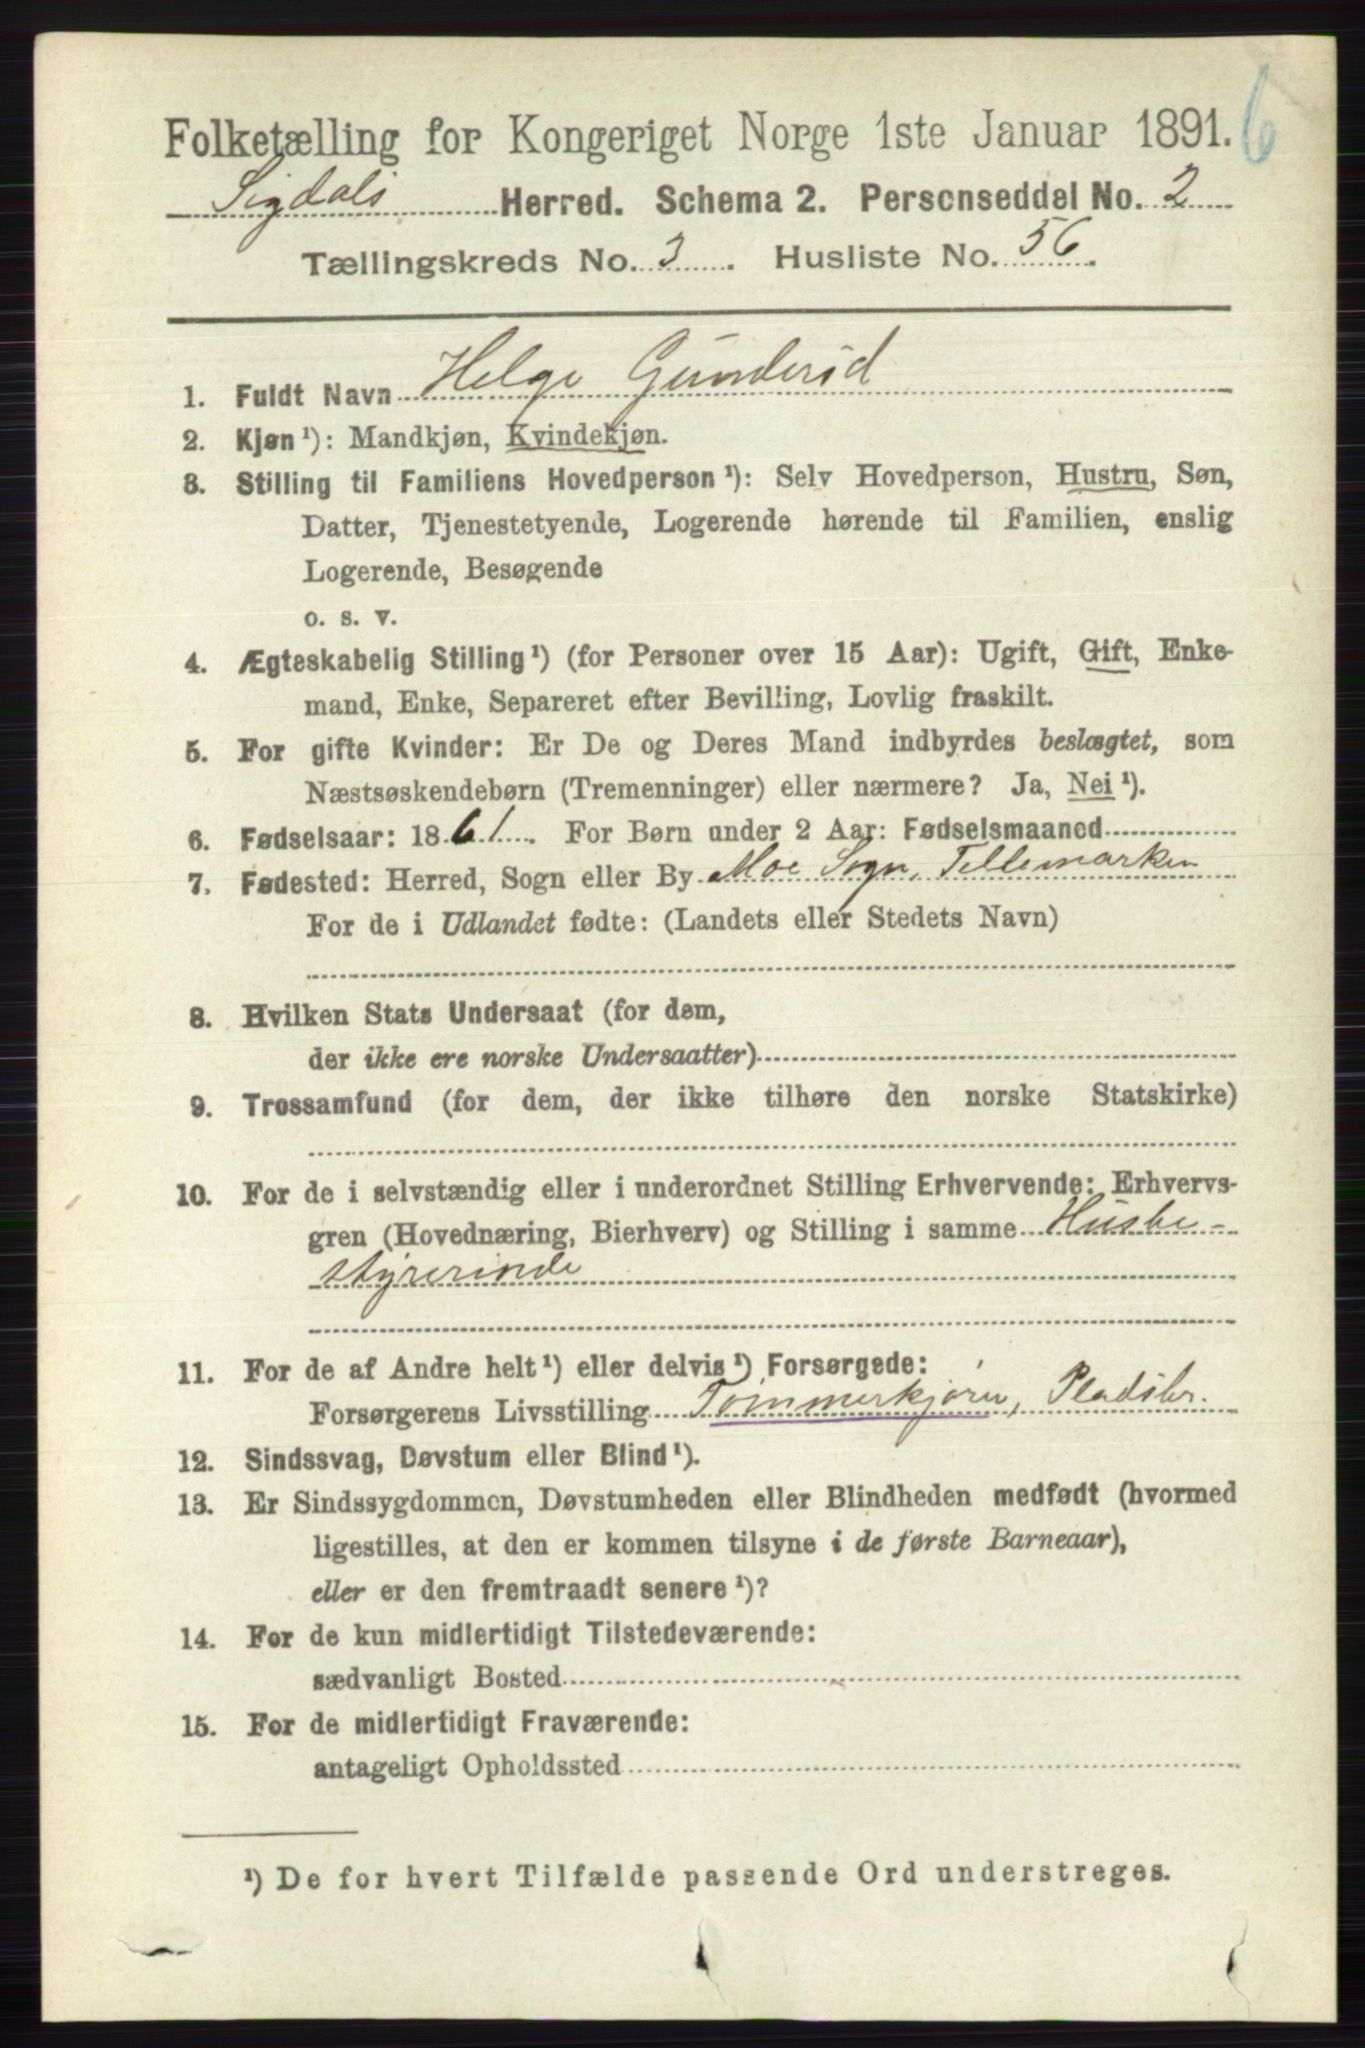 Folketælling for Kongeriget Norge 1ste Januar 1891. 6
Sigdals Herred. Schema 2. Personseddel No. 2
Tællingskreds No. 3. Husliste No. 56.
1. Fuldt Navn Helge Gunderød
2. Kjøn ¹): Mandkjøn, Kvindekjøn.
3. Stilling til Familiens Hovedperson ¹): Selv Hovedperson, Hustru, Søn,
Datter, Tjenestetyende, Logerende hørende til Familien, enslig
Logerende, Besøgende
o. s. v.
4. Ægteskabelig Stilling ¹) (for Personer over 15 Aar): Ugift, Gift, Enke-
mand, Enke, Separeret efter Bevilling, Lovlig fraskilt.
5. For gifte Kvinder: Er De og Deres Mand indbyrdes beslægtet, som
Næstsøskendebørn (Tremenninger) eller nærmere? Ja, Nei ¹).
6. Fødselsaar: 1861. For Børn under 2 Aar: Fødselsmaaned
7. Fødested: Herred, Sogn eller By Moe Sogn, Tellemarken
For de i Udlandet fødte: (Landets eller Stedets Navn)
8. Hvilken Stats Undersaat (for dem,
der ikke ere norske Undersaatter)
9. Trossamfund (for dem, der ikke tilhøre den norske Statskirke)
10. For de i selvstændig eller i underordnet Stilling Erhvervende: Erhvervs-
gren (Hovednæring, Bierhverv) og Stilling i samme Husbe-
styrerinde
11. For de af Andre helt ¹) eller delvis ¹) Forsørgede:
Forsørgerens Livsstilling Tømmerkjører, Pladsbr.
12. Sindssvag, Døvstum eller Blind ¹).
13. Er Sindssygdommen, Døvstumheden eller Blindheden medfødt (hvormed
ligestilles, at den er kommen tilsyne i de første Barneaar),
eller er den fremtraadt senere ¹)?
14. For de kun midlertidigt Tilstedeværende:
sædvanligt Bosted
15. For de midlertidigt Fraværende:
antageligt Opholdssted
¹) De for hvert Tilfælde passende Ord understreges.